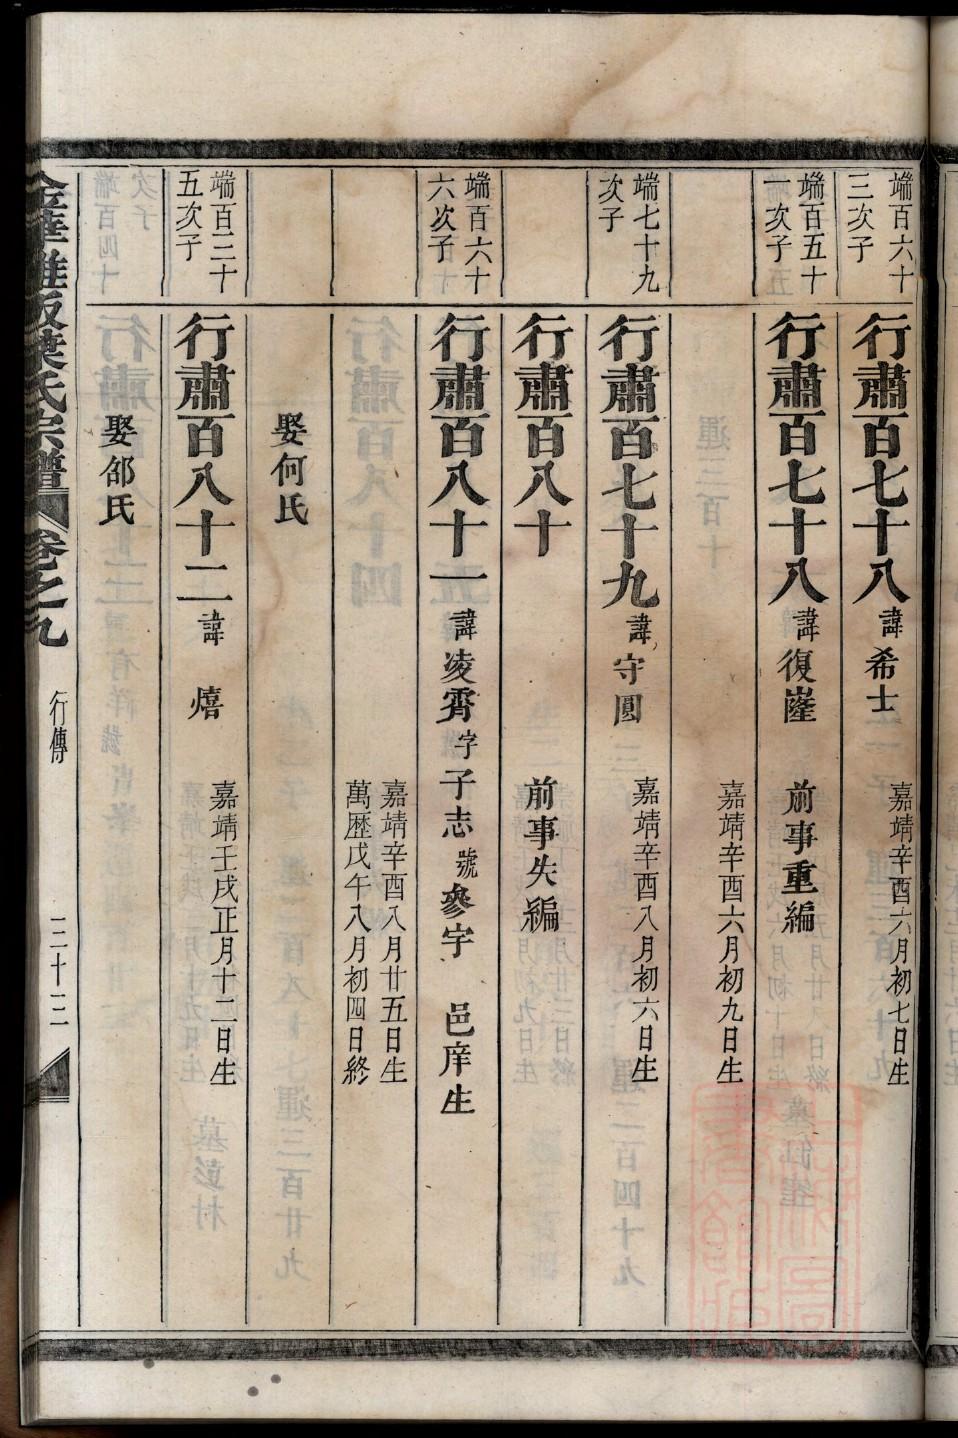 端百六十
三次子
行肅百七十八 諱希士
嘉靖辛酉六月初七日生
端百五十
一次子
行肅百七十八 諱復嶐 前事重編
嘉靖辛酉六月初九日生
端七十九
次子
行肅百七十九 諱守圓
嘉靖辛酉八月初六日生
行肅百八十 前事失編
端百六十
六次子
行肅百八十一 諱凌霄字子志號參宇 邑庠生
嘉靖辛酉八月廿五日生
萬歷戊午八月初四日終
娶何氏
端百三十
五次子
行肅百八十二 諱熺
嘉靖壬戌正月十二日生
娶邵氏
葉氏宗譜 卷之九 行傳 三十三